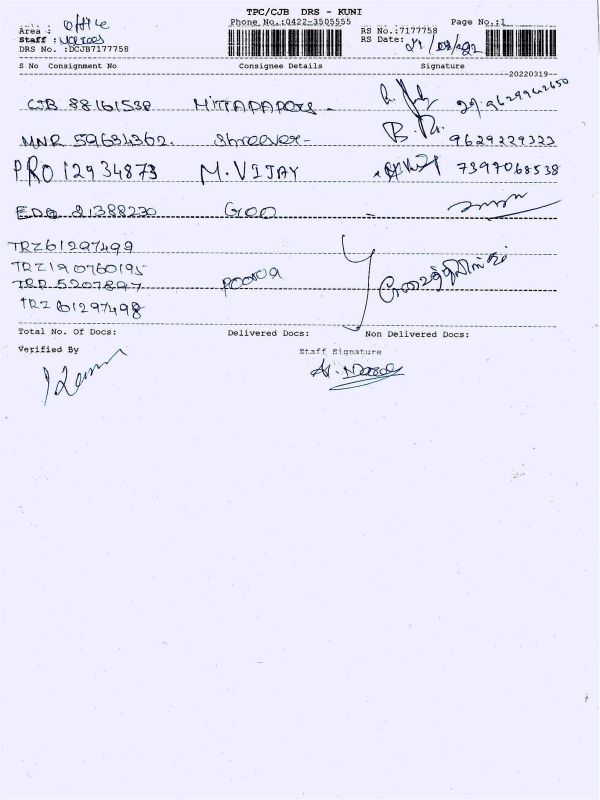 TPC/CJB DRS - KUNI
Area : office Phone No.:0422-3505555 Page No.:1
Staff : RS No.:7177758
DRS No. :DCJB7177758 RS Date:
S No Consignment No Consignee Details Signature
20220319
CJB 88161538
MNR 59681362. 9629229323
PRO 12934873 M.VIJAY 7397068538
EDQ 21388230 GOO
TRZ61297499
TRZ190760195
TRR 5207897
TRZ 61297498
Total No. Of Docs: Delivered Docs: Non Delivered Docs:
Verified By Staff Signature